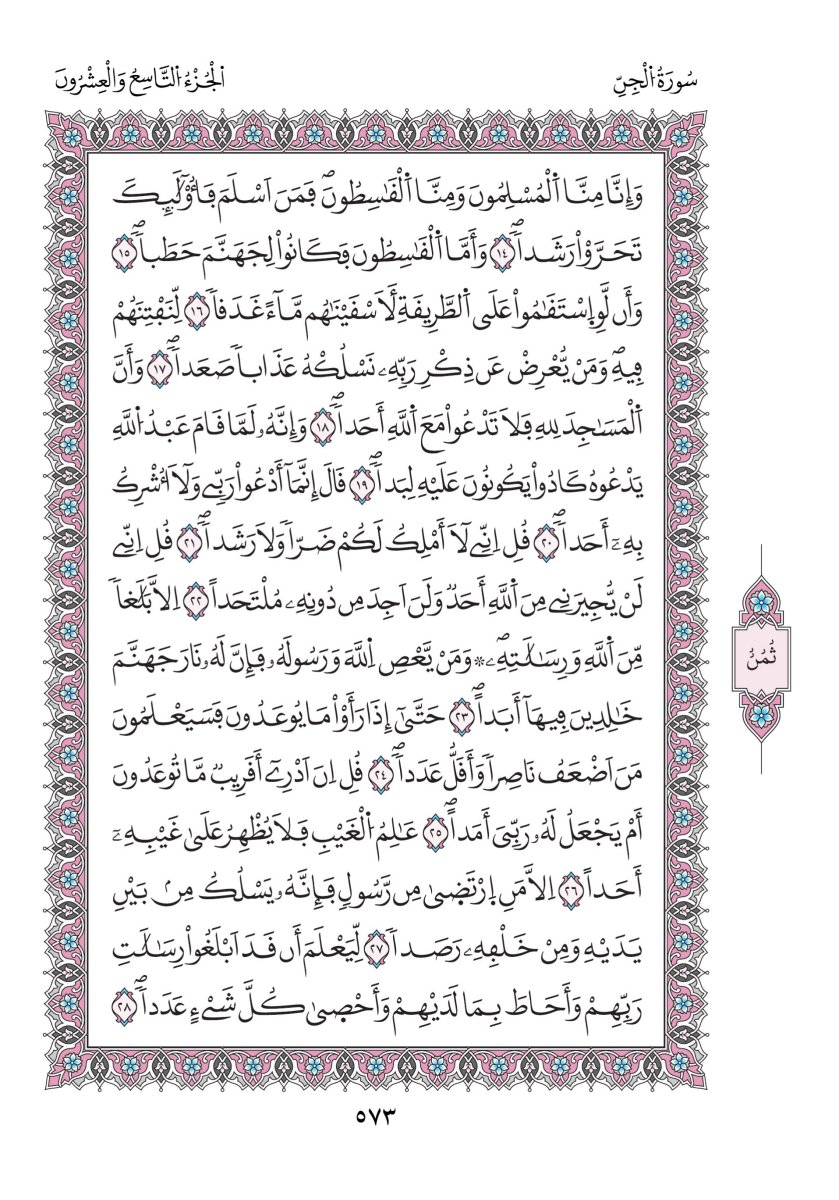 سُورَةُ اُلْجِنِّ
اُلْجُزْءُ اُلتَّاسِعُ وَالْعِشْرُونَ
وَإِنَّا مِنَّا اَلْمُسْلِمُونَ وَمِنَّا اَلْقَٰسِطُونَۖ فَمَنَ اَسْلَمَ فَأُوْلَٰٓئِكَ
تَحَرَّوْاْ رَشَداٗۖ ١٤ وَأَمَّا اَلْقَٰسِطُونَ فَكَانُواْ لِجَهَنَّمَ حَطَباٗۖ ١٥
وَأَن لَّوِ اِسْتَقَٰمُواْ عَلَى اَلطَّرِيقَةِ لَأَسْقَيْنَٰهُم مَّآءً غَدَقاٗ ١٦ لِّنَفْتِنَهُمْ
فِيهِۖ وَمَنْ يُّعْرِضْ عَن ذِكْرِ رَبِّهِۦ نَسْلُكْهُ عَذَاباٗ صَعَداٗۖ ١٧ وَأَنَّ
اَلْمَسَٰجِدَ لِلهِ فَلَا تَدْعُواْ مَعَ اَللَّهِ أَحَداٗۖ ١٨ وَإِنَّهُۥ لَمَّا قَامَ عَبْدُ اُللَّهِ
يَدْعُوهُ كَادُواْ يَكُونُونَ عَلَيْهِ لِبَداٗۖ ١٩ قَالَ إِنَّمَآ أَدْعُواْ رَبِّے وَلَآ أُشْرِكُ
بِهِۦٓ أَحَداٗۖ ٢٠ قُلِ اِنِّے لَآ أَمْلِكُ لَكُمْ ضَرّاٗ وَلَا رَشَداٗۖ ٢١ قُلِ اِنِّے
لَنْ يُّجِيرَنِے مِنَ اَللَّهِ أَحَدٞ وَلَنَ اَجِدَ مِن دُونِهِۦ مُلْتَحَداً ٢٢ اِلَّا بَلَٰغاٗ
مِّنَ اَللَّهِ وَرِسَٰلَٰتِهِۦۖ ۞ وَمَنْ يَّعْصِ اِللَّهَ وَرَسُولَهُۥ فَإِنَّ لَهُۥ نَارَ جَهَنَّمَ
خَٰلِدِينَ فِيهَآ أَبَداًۖ ٢٣ حَتَّيٰٓ إِذَا رَأَوْاْ مَا يُوعَدُونَ فَسَيَعْلَمُونَ
مَنَ اَضْعَفُ نَاصِراٗ وَأَقَلُّ عَدَداٗۖ ٢٤ قُلِ اِنَ اَدْرِےٓ أَقَرِيبٞ مَّا تُوعَدُونَ
أَمْ يَجْعَلُ لَهُۥ رَبِّيَ أَمَداًۖ ٢٥ عَٰلِمُ اُلْغَيْبِ فَلَا يُظْهِرُ عَلَىٰ غَيْبِهِۦٓ
أَحَداً ٢٦ اِلَّا مَنِ اِرْتَضَىٰ مِن رَّسُولٖ فَإِنَّهُۥ يَسْلُكُ مِنۢ بَيْنِ
يَدَيْهِ وَمِنْ خَلْفِهِۦ رَصَداٗ ٢٧ لِّيَعْلَمَ أَن قَدَ اَبْلَغُواْ رِسَٰلَٰتِ
رَبِّهِمْ وَأَحَاطَ بِمَا لَدَيْهِمْ وَأَحْصَىٰ كُلَّ شَےْءٍ عَدَداٗۖ ٢٨
ثُمُنُ
٥٧٣